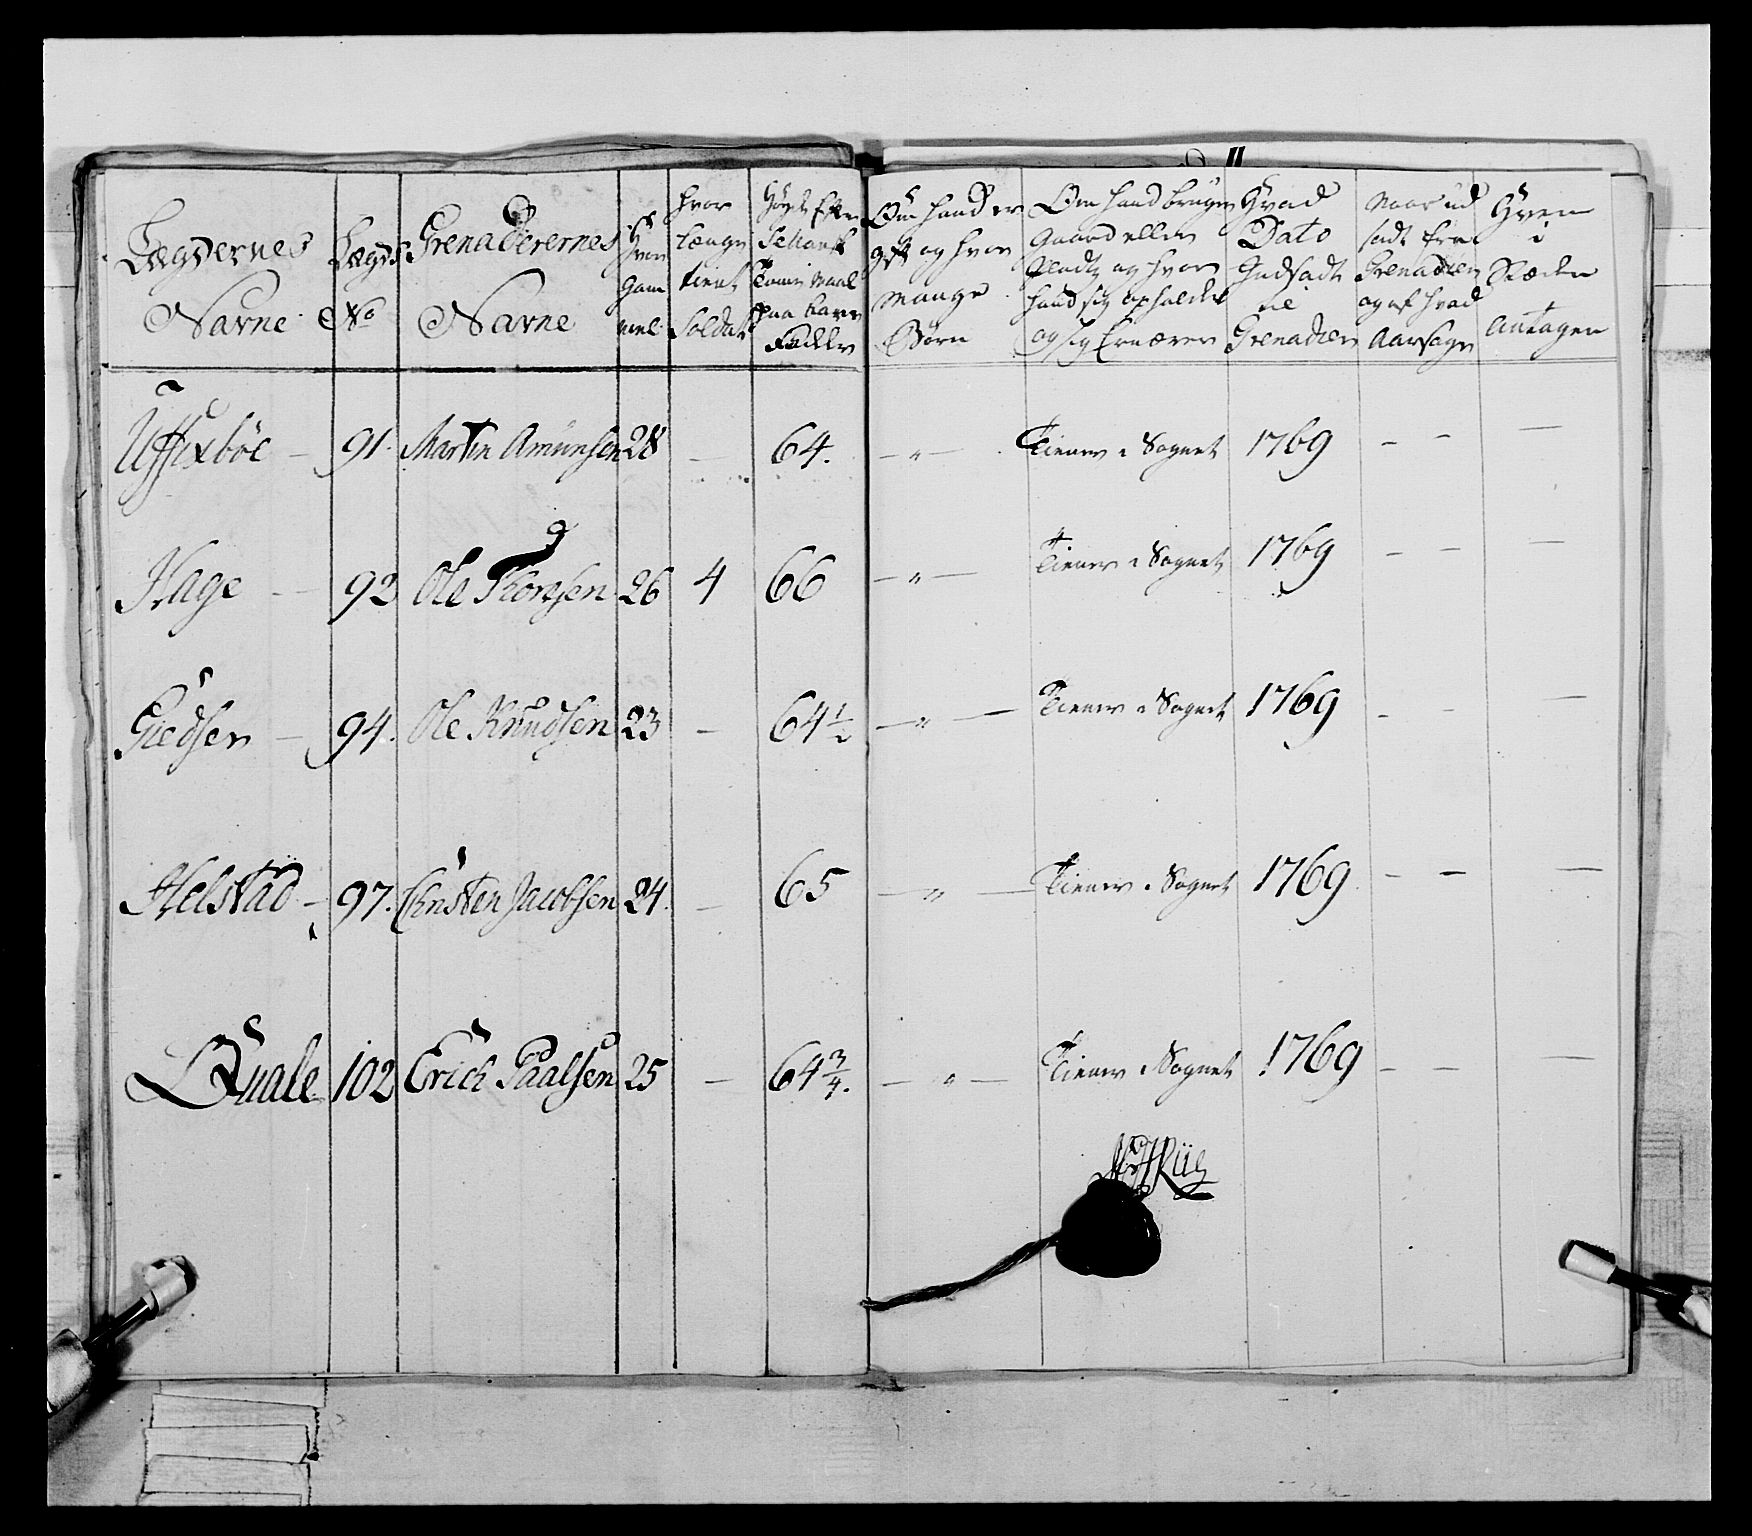 Lægdernes Navne
Lægds No
Grenaderernes Navne
Hvor Gam mel
Hvor længe tient Soldat
Høyde Efter Tomme Maal paa bare Fødder
Om hand er gift og hvor mange Børn
Om hand bruger Gaard eller Pladtz og hvor hand sig opholder og sig Ernærer
Hvad Dato Indsadt til Grenadeer
Naar ud sadt fra Grenadeer og af hvad Aarsage
Hvem i Stæden Antagen
Uffixböe - 91. Martin Amunsen 28 - 64. - " - Tiener i Sognet 1769 - - -
Hage - - 92 Ole Thorsen 26 4 66 - " - Tiener i Sognet 1769 - - -
Giedsen - 94. Ole Knudsen 23 - 64 1/2 - " - Tiener i Sognet 1769 - - -
Helstad - 97. Christen Jacobsen 24. - 65 - " - Tiener i Sognet 1769 - - -
Quale 102 Erick Paalsen 25 - 64 3/4. - " - Tiener i Sognet 1769 - - -